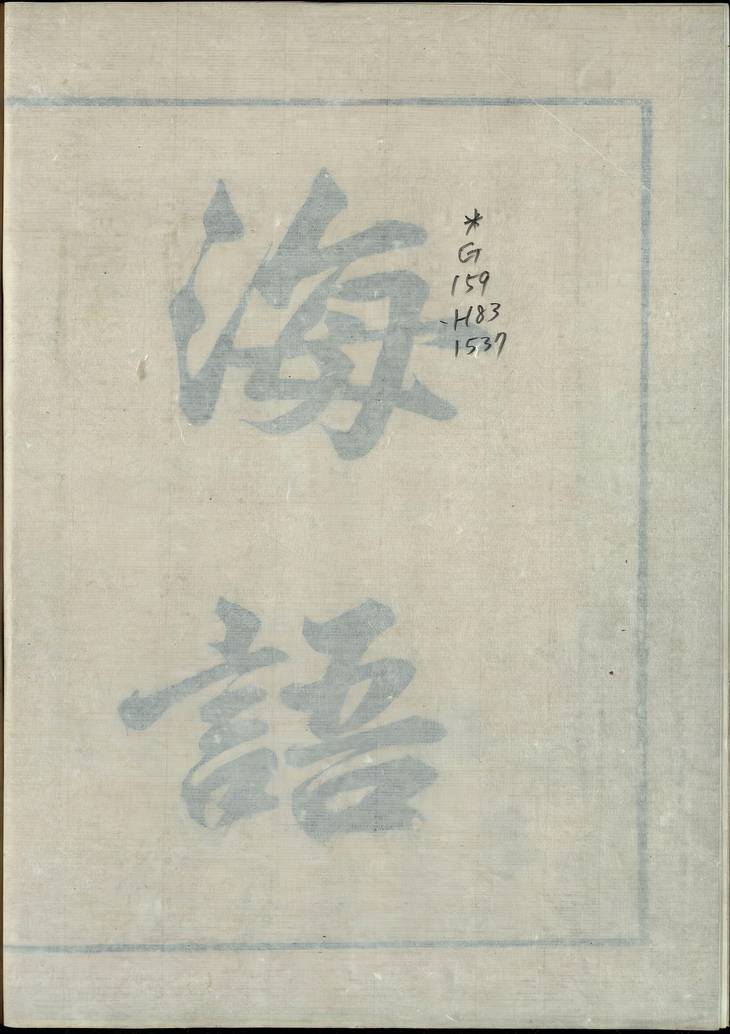 海語
*
G
159
-H83
1537